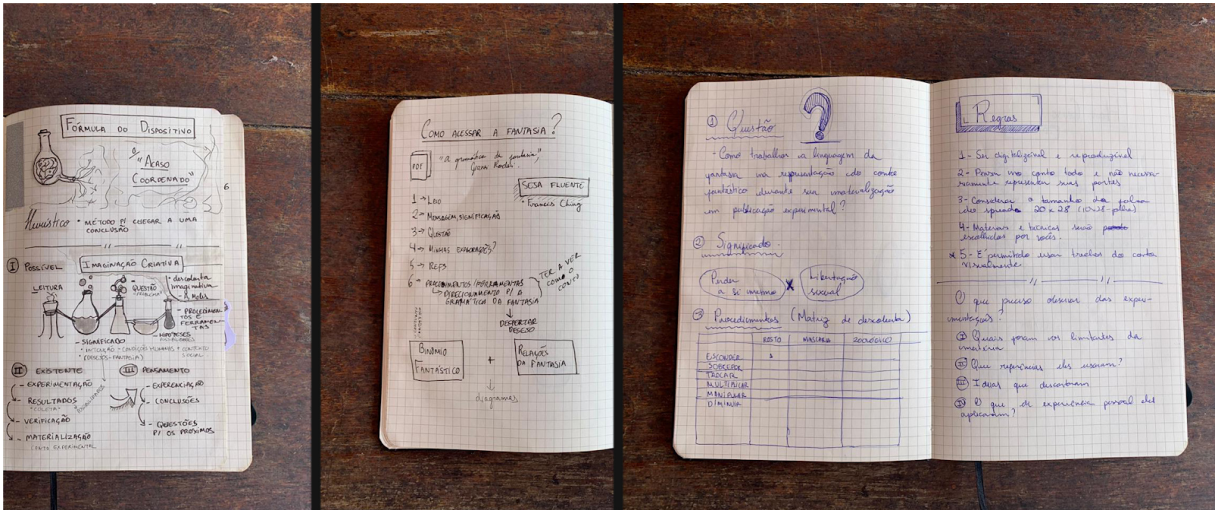 FÓRMULA DO DISPOSITIVO
"ACASO
COORDENADO"
6
Heurístico • MÉTODO P/ CHEGAR A UMA
CONCLUSÃO
I POSSÍVEL
IMAGINAÇÃO CRIATIVA
LEITURA
• QUESTÃO
• descoberta
imaginativa
- PROCEDIMEN-
TOS E
FERRAMEN-
TAS
- HIPÓTESES
- SIGNIFICADO
II EXISTENTE
- EXPERIMENTAÇÃO
- RESULTADOS
"COLETA"
- VERIFICAÇÃO
- MATERIALIZAÇÃO
CONTO EXPERIMENTAL
III PENSAMENTO
- EXPERENCIAÇÃO
- CONCLUSÕES
- QUESTÕES
P/ OS PRÓXIMOS
COMO ACESSAR A FANTASIA?
PDF
"a gramática da fantasia,"
Gianni Rodari
SEJA FLUENTE
• Francis Ching
1 → LIDO
2 → MENSAGEM, SIGNIFICAÇÃO
3 → QUESTÃO
4 → MINHAS EXPLORAÇÕES?
5 → REFS
6 → PROCEDIMENTOS/FERRAMENTAS
DIRECIONAMENTO P/ A
GRAMÁTICA DA FANTASIA
TER A VER
COMO O
DESPERTAR
DESEJO
BINÔMIO
FANTÁSTICO
+
RELAÇÕES
DA FANTASIA
diagramas
1 Questão
?
- Como trabalhar a linguagem da
fantasia na representação do conto
fantástico durante sua materialização
em publicação experimental?
2 Significado
Perder
a si mesmo
X
Libertação
sexual
3 Procedimentos (Matriz de descoberta)
ROSTO MÁSCARA ZOOLÓGICO
ESCONDER
SOBREPOR
TROCAR
MULTIPLICAR
MANIPULAR
DIMINUIR
Regras
1 - Ser digitalizável e reproduzível
2 - Pensar no conto todo e não neces-
sariamente representar suas partes
3 - Considerar o tamanho da folha
do spread 20 x 28
4 - Materiais e técnicas serão
escolhidos por vocês.
* 5 - É permitido usar trechos do conto
visualmente.
O que preciso observar das exper-
imentações?
I Quais foram os limitantes da
matéria
II Que referências eles usaram?
III Ideias que descartaram
IV O que de experiência pessoal eles
aplicaram?